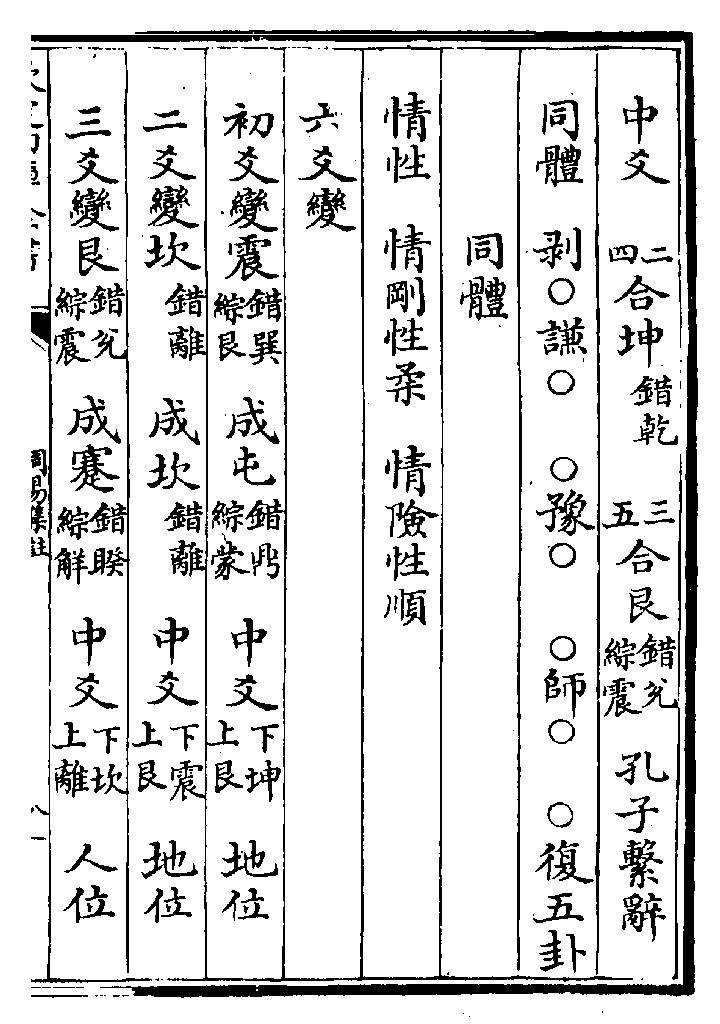 中爻 二四合坤 錯乾 三五合艮 錯兊綜震 孔子繫辭
同體 剥○謙○ ○豫○ ○師○ ○復五卦
同體
情性 情剛性柔 情險性順
六爻變
初爻變震 錯巽綜艮 成屯 錯鼎綜蒙 中爻 下坤上艮 地位
二爻變坎 錯離 成坎 錯離 中爻 下震上艮 地位
三爻變艮 錯兊綜震 成蹇 錯睽綜解 中爻 下坎上離 人位
周易集註